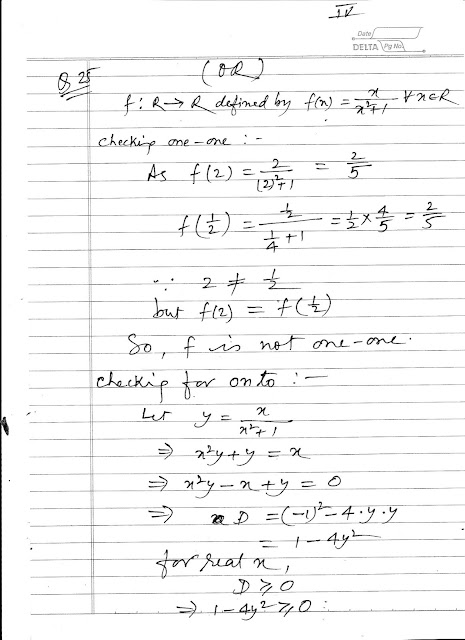 IV
Date
DELTA Pg No.
Q 25
(OR)
f : R → R defined by f(x) = x/(x²+1) ∀ x ∈ R
checking one-one :-
As f(2) = 2/((2)²+1) = 2/5
f(1/2) = (1/2)/(1/4 + 1) = 1/2 × 4/5 = 2/5
∵ 2 ≠ 1/2
but f(2) = f(1/2)
So, f is not one-one.
checking for onto :-
Let y = x/(x²+1)
⇒ x²y + y = x
⇒ x²y - x + y = 0
⇒ D = (-1)² - 4·y·y
= 1 - 4y²
for real x,
D ≥ 0
⇒ 1 - 4y² ≥ 0 :